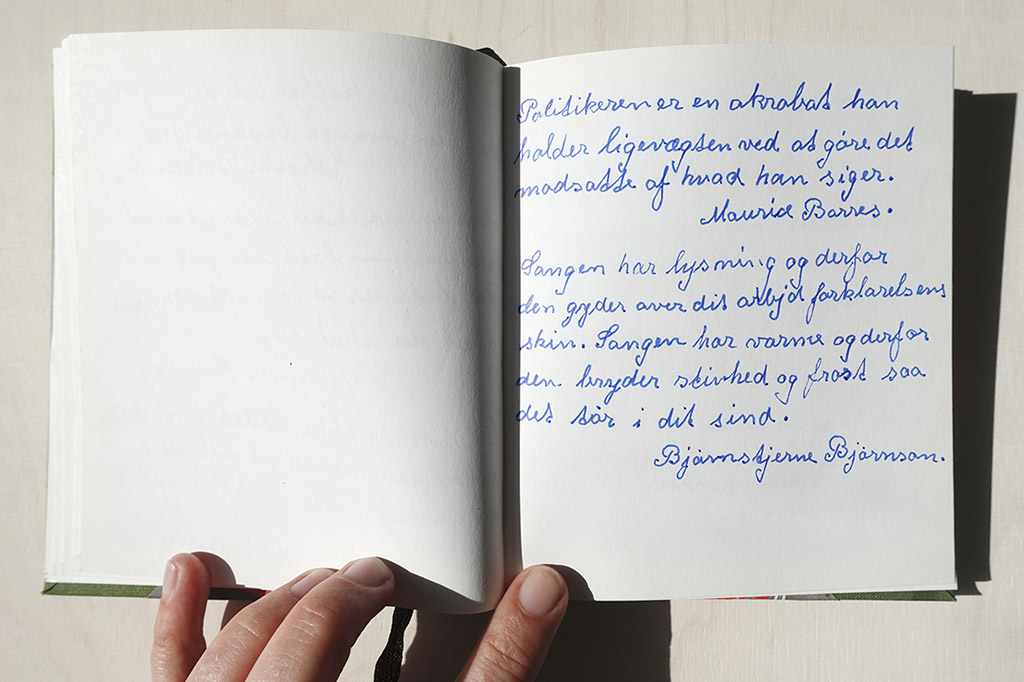 Politikeren er en akrobat han
holder ligevægten ved at gøre det
modsatte af hvad han siger.
Maurice Barres.
Sangen har lysning og derfor
den gyder over dit arbjd forklarelsens
skin. Sangen har varme og derfor
den bryder stivhed og frost saa
det tør i dit sind.
Bjørnstjerne Bjørnson.